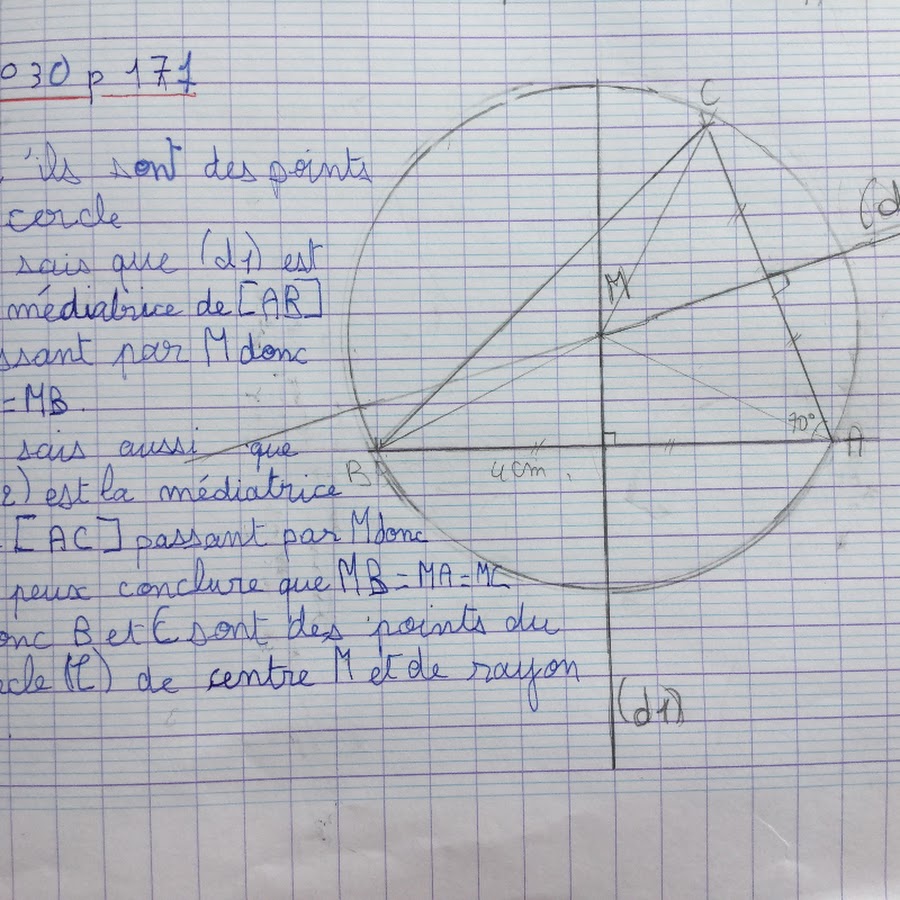 030 p 171
ils sont des points
cercle
sais que (d1) est
médiatrice de [AB]
ssant par M donc
=MB.
sais aussi que
2) est la médiatrice
[AC] passant par M donc
peux conclure que MB=MA=MC
onc B et C sont des points du
cle (C) de centre M et de rayon
C
(d
M
70°
A
B
4cm.
(d1)